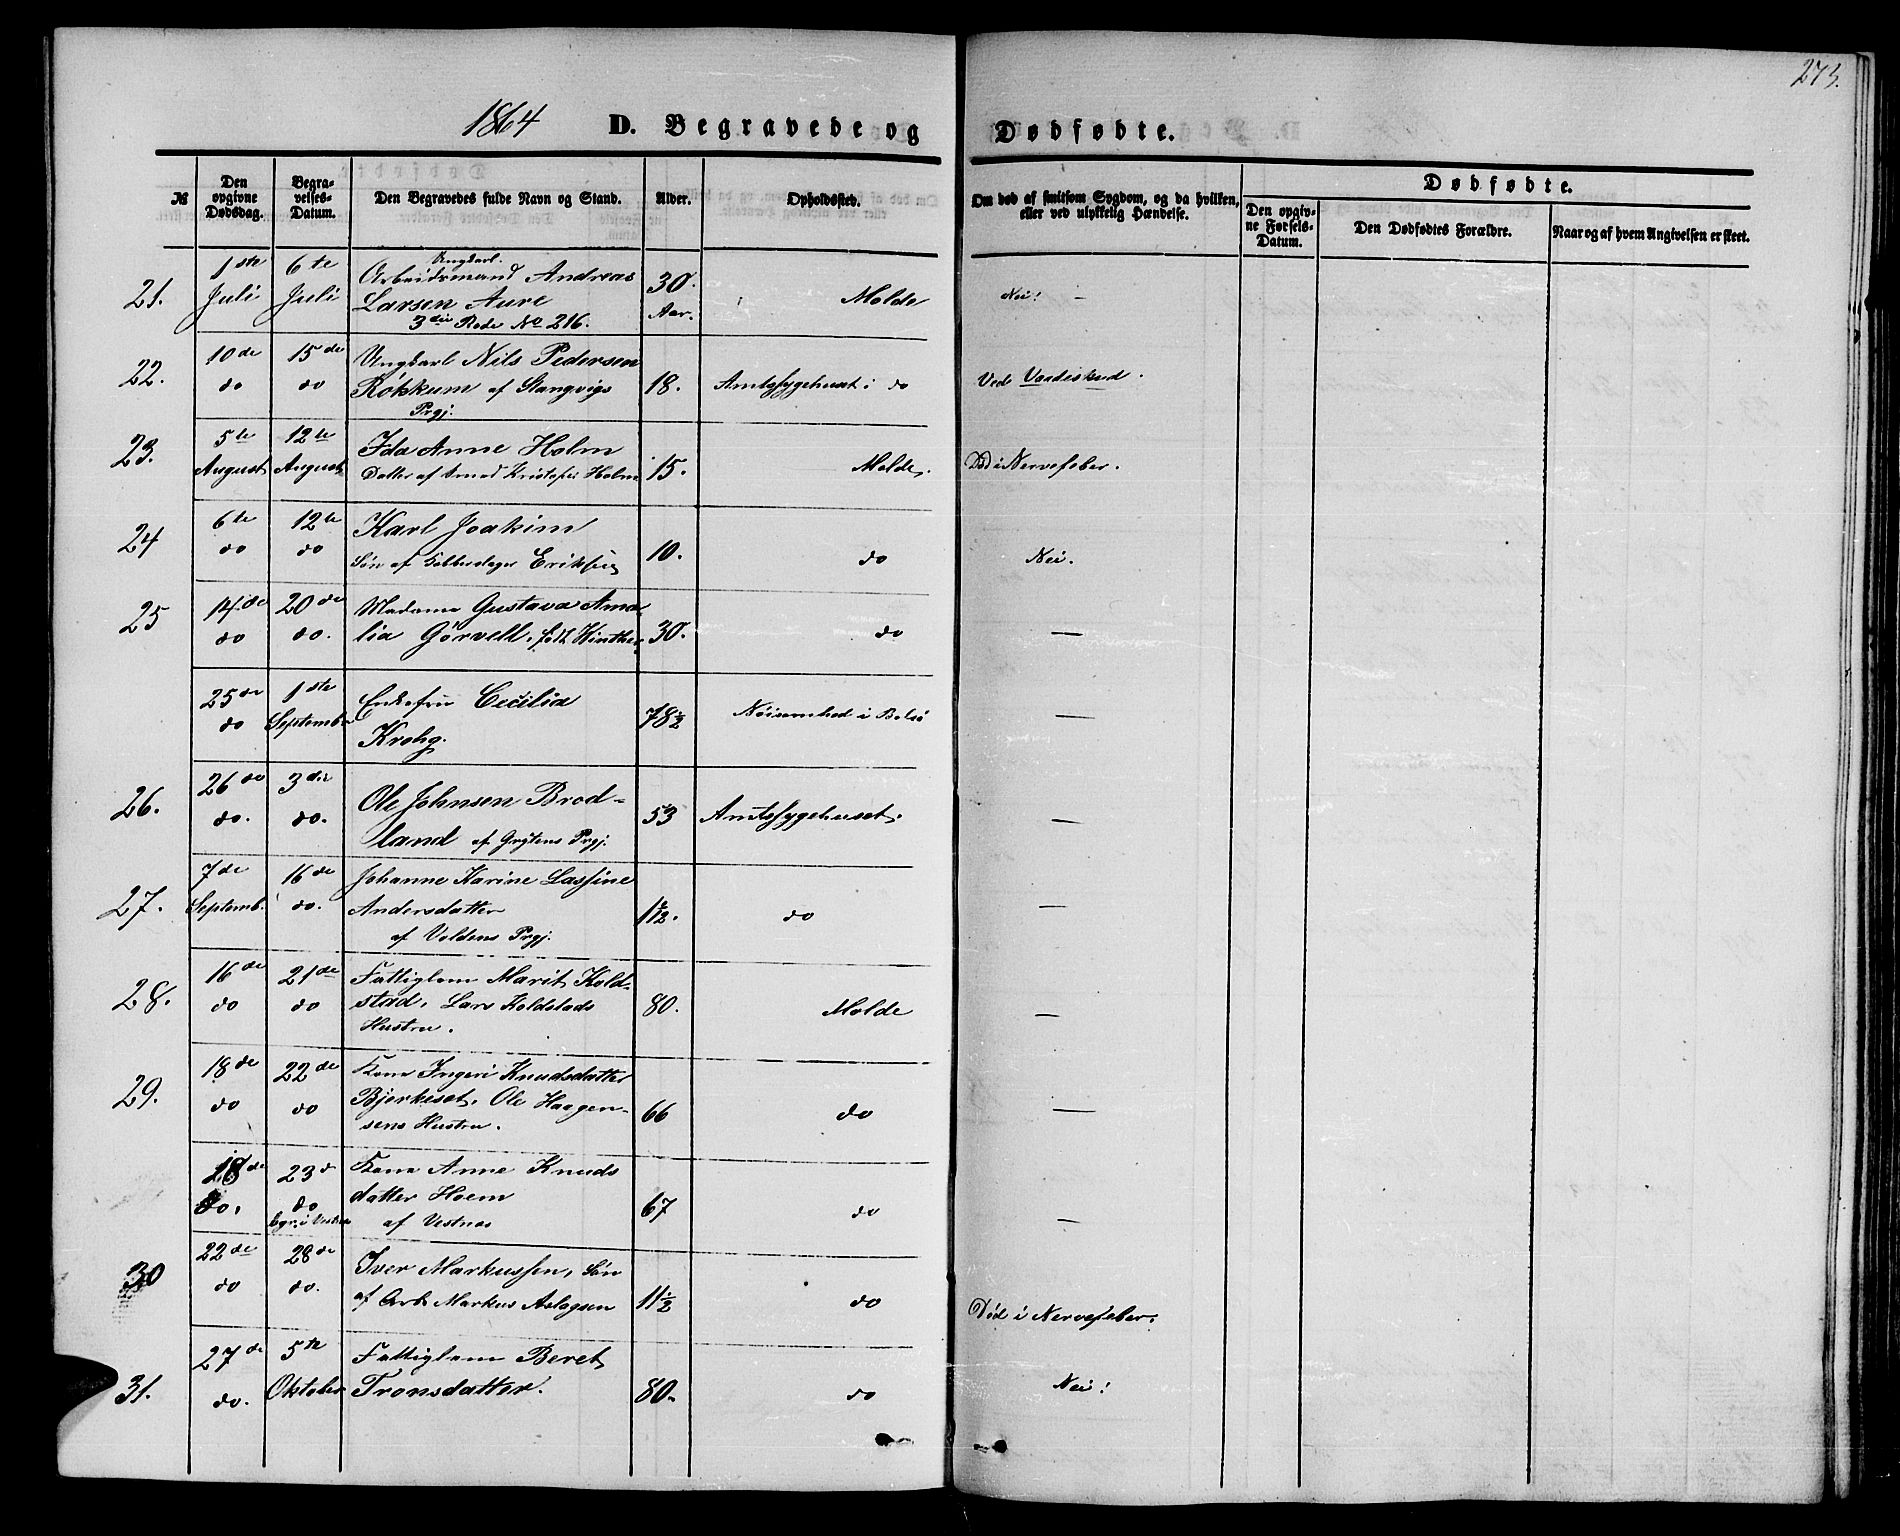 273.
1864 D. Begravede og Dødfødte.
№ Den opgivne Dødsdag. Begravelses-Datum. Den Begravedes fulde Navn og Stand. Alder. Opholdssted. Om død af smitsom Sygdom, og da hvilken, eller ved ulykkelig Hændelse. Dødfødte.
Den opgivne Førsels-Datum. Den Dødfødtes Forældre. Naar og af hvem Angivelsen er skeet.
Ungkarl.
21. 1ste Juli 6te Juli Arbeidsmand Andreas 30 Aar. Molde Nei! -
Larsen Aure
3die Rode No 216.
22. 10de do 15de do Ungkarl Nils Pedersen 18. Amtssygehuset i do Ved Vaadeskud.
Røkkum af Stangvigs
Prgj.
23. 5te August 12te August Ida Anne Holm 15. Molde. Død i Nervefeber.
Datter af Smed Kristofer Holm
24 6te do 12te do Karl Joakim 10. do Nei.
Søn af Kobberslager Eriksen
25 14de do 20de do. Madame Gustava Ama- 30. do —
lia Görvell, født Winther
25de do 1ste September Enkefru Cecilia 78½ Nøisomhed i Bolsø —
Krohg.
26. 26de do. 3die do. Ole Johnsen Brød- 53 Amtssygehuset. —
land af Grytens Prgj.
27. 7de Septemb. 16de do. Johanne Karine Lassine 1 1/12. do —
Andersdatter
af Voldens Prgj.
28. 16de do 21de do Fattiglem Marit Kold- 80. Molde —
stad, Lars Koldstads
Hustru.
29. 18de do 22de do Kone Ingeri Knudsdatter 66 do —
Bjerkeset, Ole Haagen-
sens Hustru.
18de do. 23d do Kone Anne Knuds 67 do —
datter Hoem
af Vestnæs
30 22de do 28de do. Iver Markussen, Søn 11½ do Død i Nervefeber.
af Arb. Markus Aslagsen
31. 27de do. 5te Oktober Fattiglem Beret 80. do Nei!
Tronsdatter.